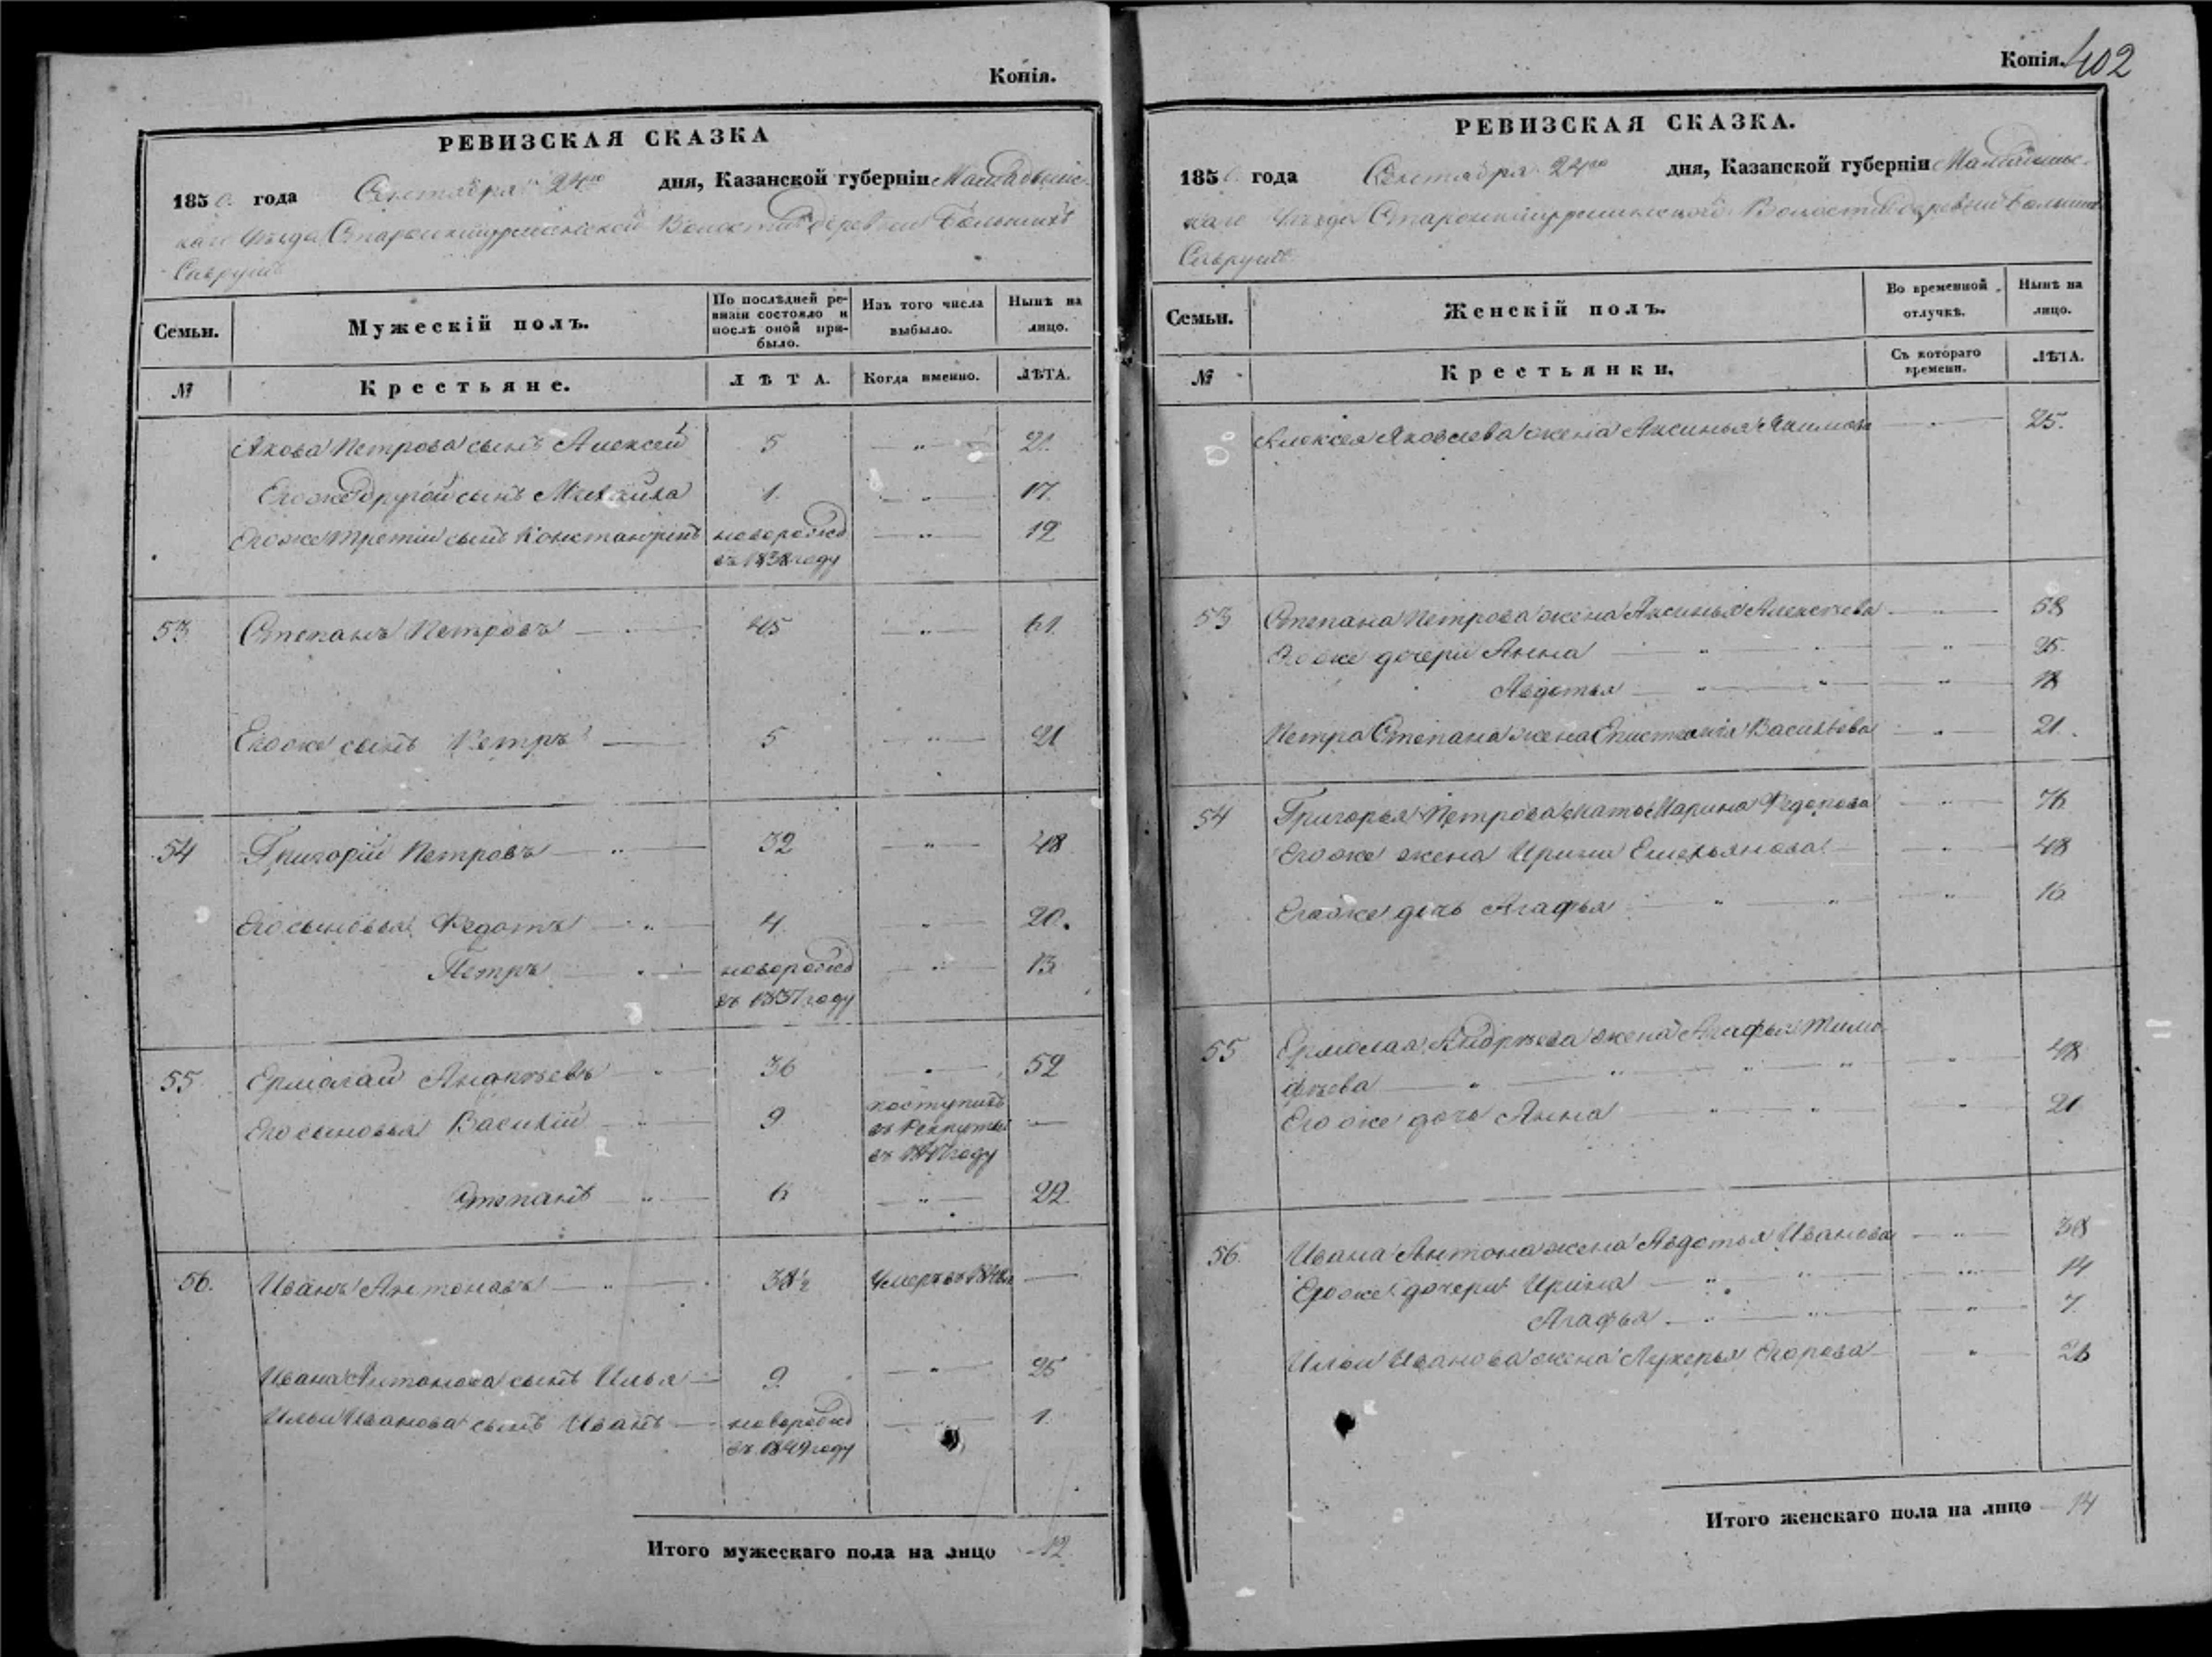 Копія.
РЕВИЗСКАЯ СКАЗКА
1850 года Сентября 24го дня, Казанской губерніи Мамадышс-
каго Уѣзда Волости деревни Большихъ
Саврушъ
Семьи. Мужескій полъ. По послѣдней ре-визіи состояло и послѣ оной при-было. Изъ того числа выбыло. Нынѣ на лицо.
№ Крестьяне. ЛѢТА. Когда именно. ЛѢТА.
Якова Петрова сынъ Алексей 5 — „ — 21
Его же другой сынъ Михайла 1. — „ — 17.
Его же третій сынъ Константинъ новорожд — „ — 12
въ 1838 году
53 Степанъ Петровъ — 45 — „ — 61.
Его же сынъ Петръ — 5 — „ — 21
54 Григорій Петровъ — „ — 32 — „ — 48
Его сыновья Федотъ — „ — 4. — „ — 20.
Петръ — „ — новорожд — „ — 13
въ 1837 году
55 Ермолай Андреевъ — „ 36 — „ — 52
Его сыновья Василій — „ — 9 поступилъ —
въ рекруты
въ 1847 году
Степанъ — „ — 6 — „ — 22
56. Иванъ Антоновъ — „ — 38½ Умеръ въ —
Ивана Антонова сынъ Илья — 9. — „ — 25
Ильи Иванова сынъ Иванъ — новорожд — „ — 1.
въ 1849 году
Итого мужескаго пола на лицо 12.
Копія. 402
РЕВИЗСКАЯ СКАЗКА.
1850 года Сентября 24го дня, Казанской губерніи Мамадышс-
каго Уѣзда Волости деревни Большихъ
Саврушъ
Семьи. Женскій полъ. Во временной отлучкѣ. Нынѣ на лицо.
№ Крестьянки. Съ котораго времени. ЛѢТА.
Алексея Яковлева жена Аксинья Якимова — „ — 25.
53 Степана Петрова жена Аксинья Алексѣева — „ — 58
Его же дочери Анна — „ — „ — 25.
Авдотья — „ — „ — „ — 18
Петра Степана жена Васильева — „ — 21.
54 Григорья Петрова мать Марина Федорова — „ — 76
Его же жена Ирина Емельянова — „ — 48
Его же дочь Агафья — „ — „ — „ — 16
55 Ермолая Андреева жена Агафья Тимо-
фѣева — „ — „ — „ — „ — „ — 48
Его же дочь Анна — „ — „ — „ — 21
56. Ивана Антона жена Авдотья Иванова — „ — 38
Его же дочери Ирина — „ — „ — „ — 14
Агафья — „ — „ — „ — 7.
Ильи Иванова жена Лукерья Егорова — „ — 26
Итого женскаго пола на лицо 14